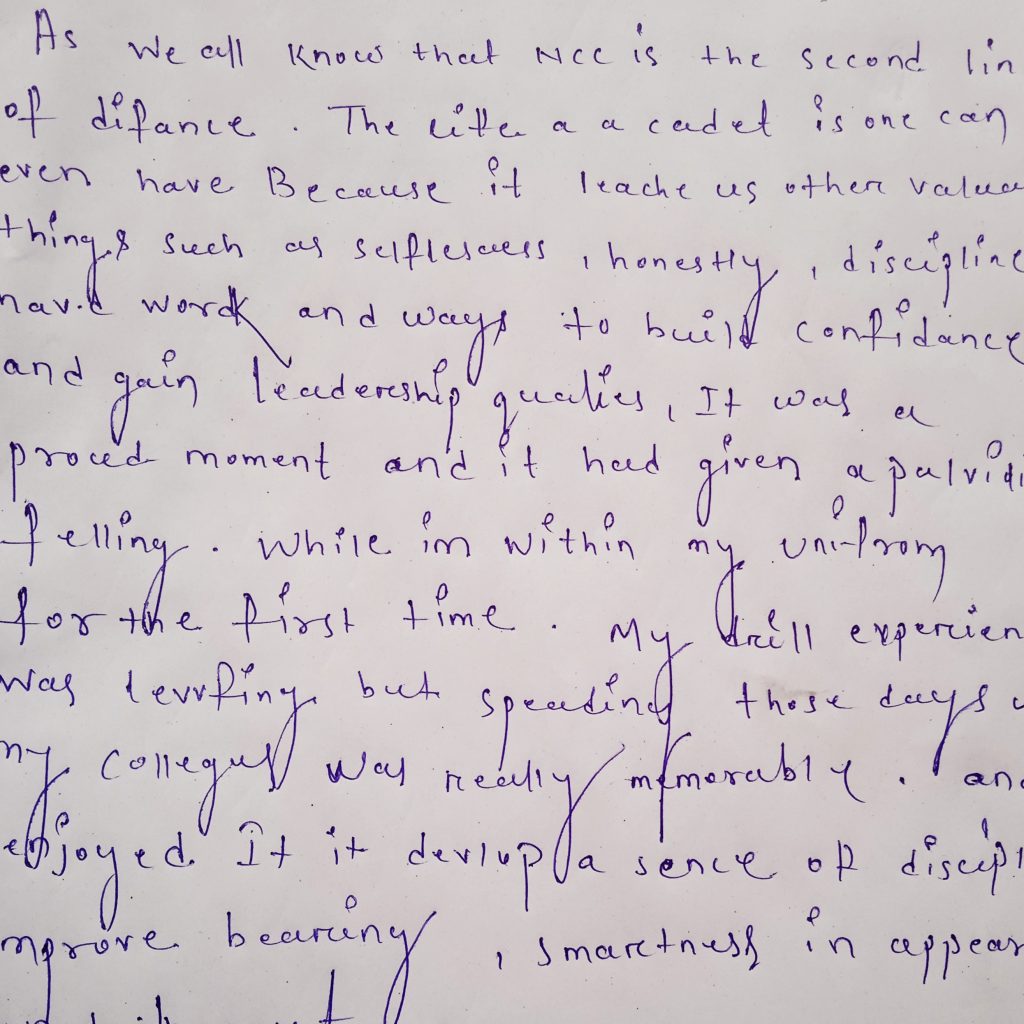 As we all know that NCC is the second lin
of difance. The life a a cadet is one can
even have Because it leache us other valua
things such as selflesness, honestly, discipline
hard work and ways to build confidance
and gain leadership qualies, It was a
proud moment and it had given a palvidi
felling. while im within my unifrom
for the first time. My drill experien
was levrfing but speading those days
my collegus was really memorably. and
enjoyed. It it devlup a sence of discipl
mprove bearing, smartness in appear